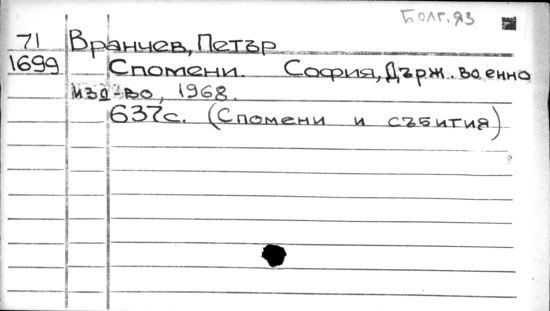 Болг. яз
71 Вранчев, Петър
1699 Спомени. София, Държ. военно
изд-во, 1968.
637с. (Спомени и събития)